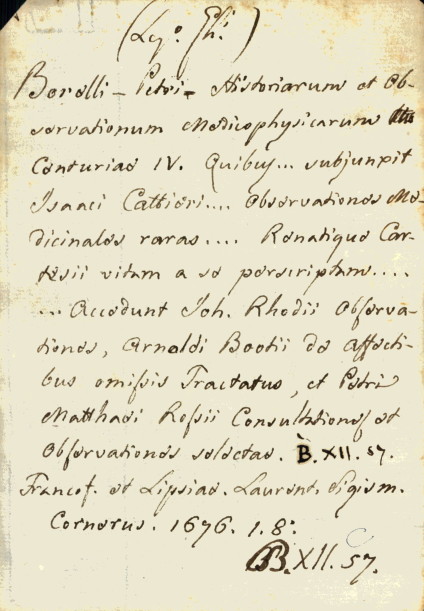 Borelli - Petri - Historiarum et Ob-
servationum Medicophysicarum
Centuriae IV. Quibus... subjunxit
Isaaci Cattieri.... Observationes Me-
dicinales raras.... Renatique Car-
tesii vitam a se perscriptam....
... Accedunt Joh. Rhodii Observa-
tiones, Arnoldi Bootii de affecti-
bus omissis Tractatus, et Petri
Matthaei Rossii Consultationes et
Observationes selectae. B.XII.57.
Francof. et Lipsiae. Laurent. Sigism.
Cornerus. 1676. 1.8º
B.XII.57.